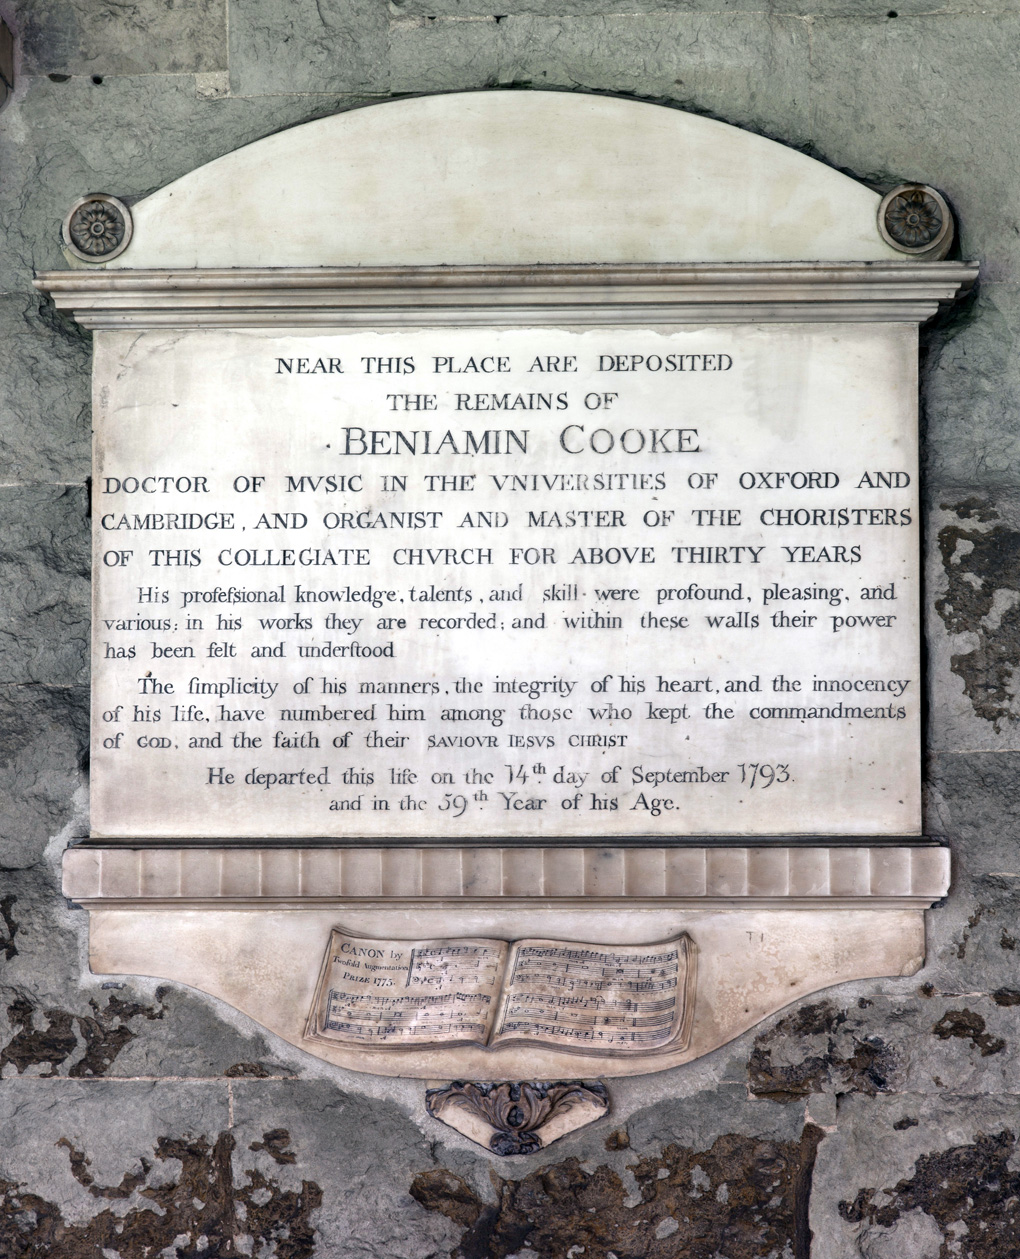 NEAR THIS PLACE ARE DEPOSITED
THE REMAINS OF
BENIAMIN COOKE
DOCTOR OF MVSIC IN THE VNIVERSITIES OF OXFORD AND
CAMBRIDGE, AND ORGANIST AND MASTER OF THE CHORISTERS
OF THIS COLLEGIATE CHVRCH FOR ABOVE THIRTY YEARS
His profeſsional knowledge, talents, and skill were profound, pleasing, and
various: in his works they are recorded; and within these walls their power
has been felt and underſtood
The ſimplicity of his manners, the integrity of his heart, and the innocency
of his life, have numbered him among those who kept the commandments
of GOD, and the faith of their SAVIOVR IESVS CHRIST
He departed this life on the 14th day of September 1793.
and in the 59th Year of his Age.
CANON by
Twofold Augmentation
PRIZE 1775.
TI